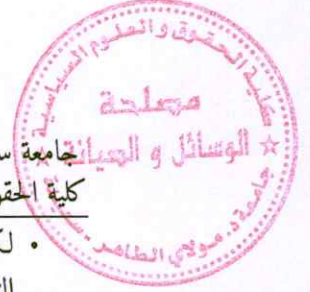 كلية الحقوق والعلوم السياسية
مصلحة
الوسائل و الصيانة
جامعة د. مولاي الطاهر - سعيدة
جامعة س
كلية الحقو
• لك